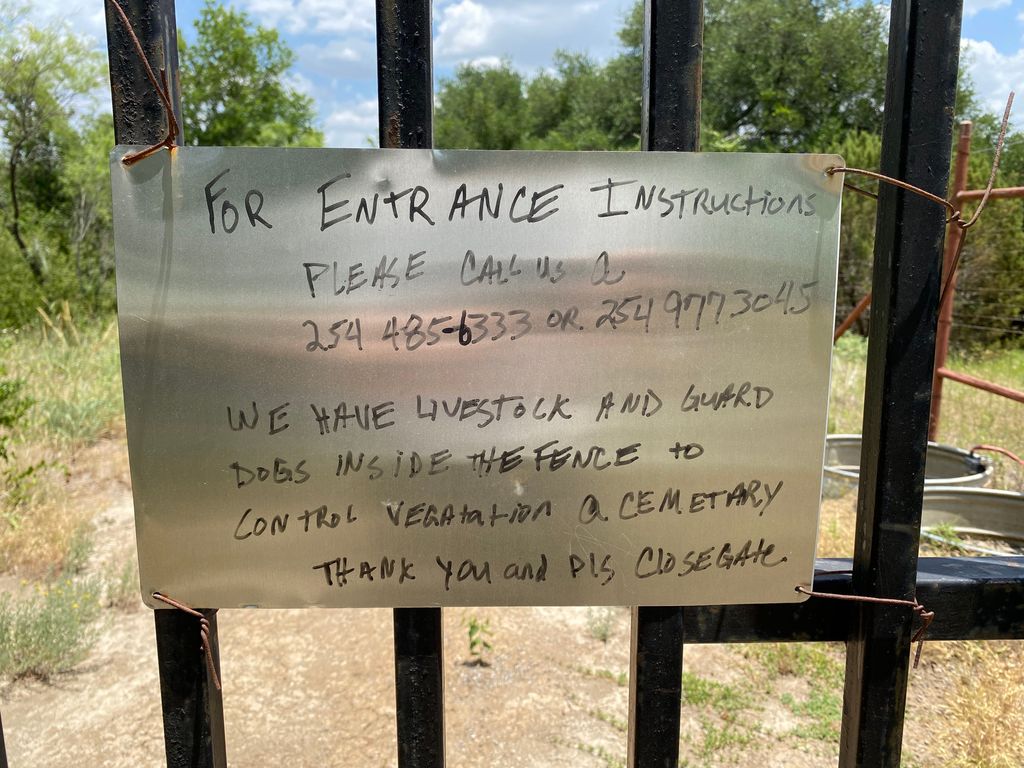 FOR ENTRANCE INSTRUCTIONS
PLEASE CALL US @
254 485-6333 OR 254 977 3045
WE HAVE LIVESTOCK AND GUARD
DOGS INSIDE THE FENCE to
CONTROL VEGATATION @ CEMETARY
THANK YOU and PlS CLOSE GATE.